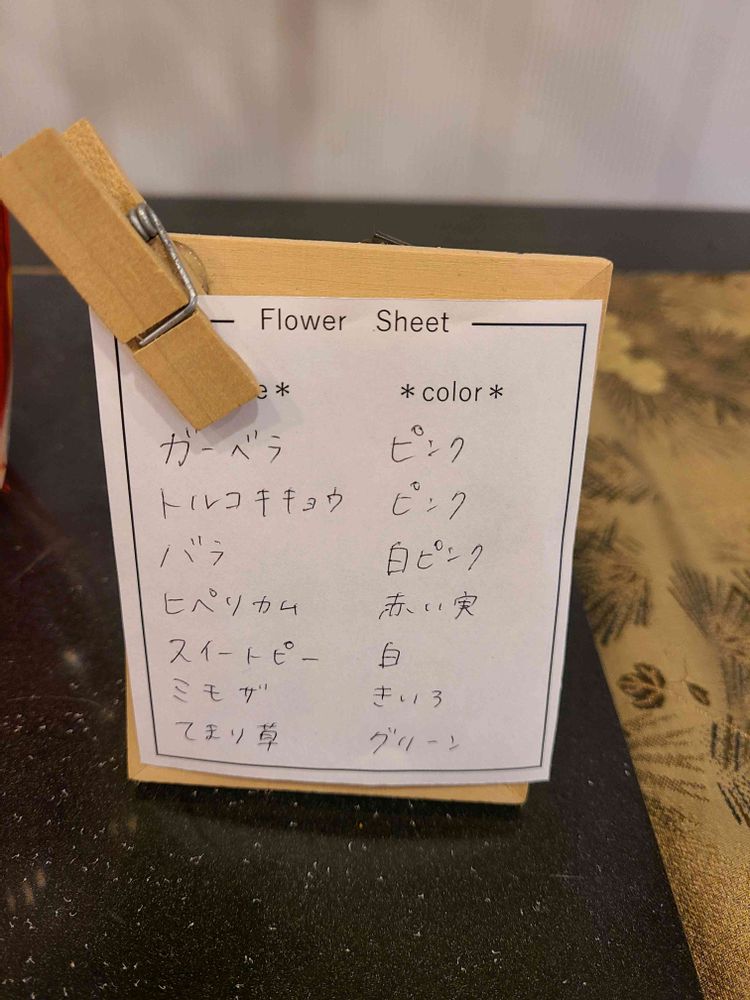 Flower Sheet
e* *color*
ガーベラ ピンク
トルコキキョウ ピンク
バラ 白ピンク
ヒペリカム 赤い実
スイートピー 白
ミモザ きいろ
てまり草 グリーン